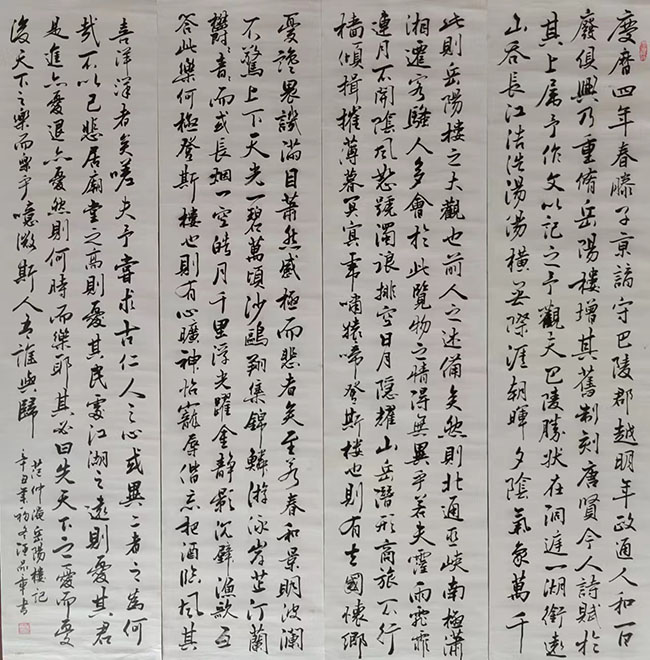 慶曆四年春滕子京謫守巴陵郡越明年政通人和百
廢俱興乃重脩岳陽樓增其舊制刻唐賢今人詩賦於
其上屬予作文以記之予觀夫巴陵勝狀在洞庭一湖銜遠
山吞長江浩浩湯湯橫無際涯朝暉夕陰氣象萬千
此則岳陽樓之大觀也前人之述備矣然則北通巫峽南極瀟
湘遷客騷人多會於此覽物之情得無異乎若夫霪雨霏霏
連月不開陰風怒號濁浪排空日月隱耀山岳潛形商旅不行
檣傾楫摧薄暮冥冥虎嘯猿啼登斯樓也則有去國懷鄉
憂讒畏譏滿目蕭然感極而悲者矣至若春和景明波瀾
不驚上下天光一碧萬頃沙鷗翔集錦鱗游泳岸芷汀蘭
欝〻青〻而或長烟一空皓月千里浮光躍金靜影沉璧漁歌互
答此樂何極登斯樓也則有心曠神怡寵辱偕忘把酒臨風其
喜洋洋者矣嗟夫予嘗求古仁人之心或異二者之為何
哉不以己悲居廟堂之高則憂其民處江湖之遠則憂其君
是進亦憂退亦憂然則何時而樂耶其必曰先天下之憂而憂
後天下之樂而樂乎噫微斯人吾誰與歸
范仲淹岳陽樓記
辛丑 書